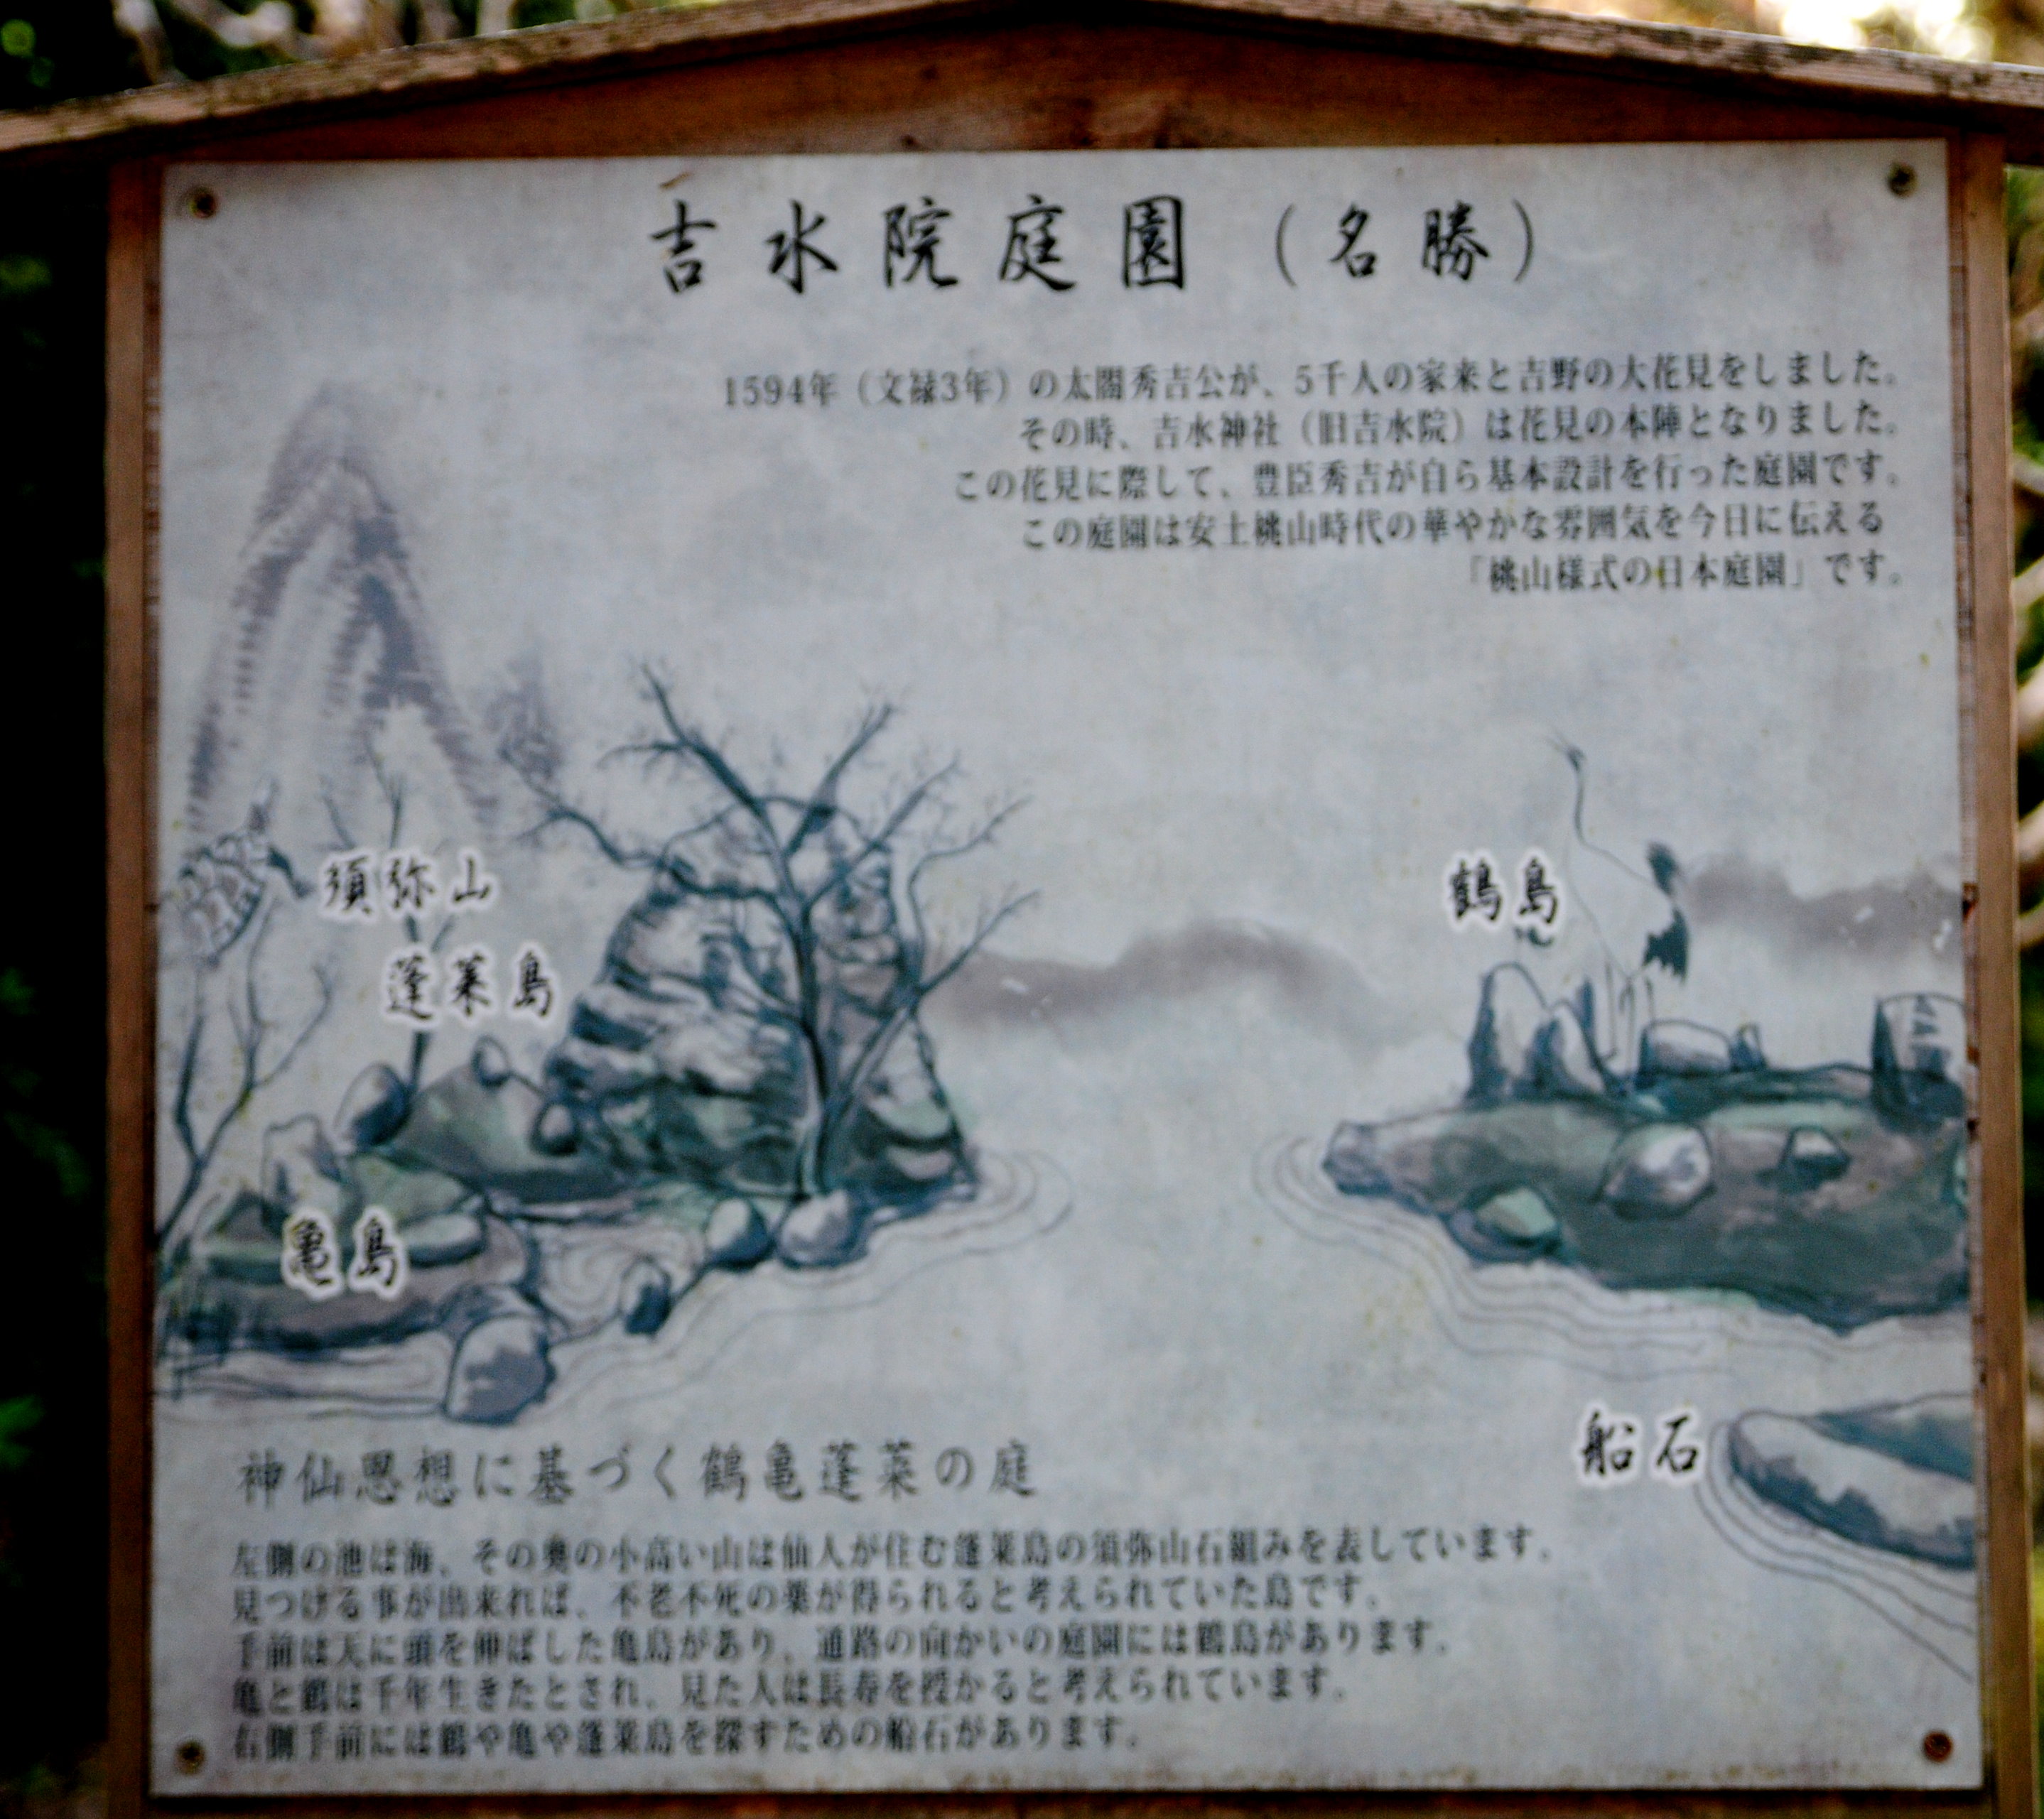 吉水院庭園（名勝）
1594年（文禄3年）の太閤秀吉公が、5千人の家来と吉野の大花見をしました。
その時、吉水神社（旧吉水院）は花見の本陣となりました。
この花見に際して、豊臣秀吉が自ら基本設計を行った庭園です。
この庭園は安土桃山時代の華やかな雰囲気を今日に伝える
「桃山様式の日本庭園」です。
須弥山
蓬莱島
鶴島
亀島
船石
神仙思想に基づく鶴亀蓬莱の庭
左側の池は海、その奥の小高い山は仙人が住む蓬莱島の須弥山石組みを表しています。
見つける事が出来れば、不老不死の薬が得られると考えられていた島です。
手前は天に頭を伸ばした亀島があり、通路の向かいの庭園には鶴島があります。
亀と鶴は千年生きたとされ、見た人は長寿を授かると考えられています。
右側手前には鶴や亀や蓬莱島を探すための船石があります。